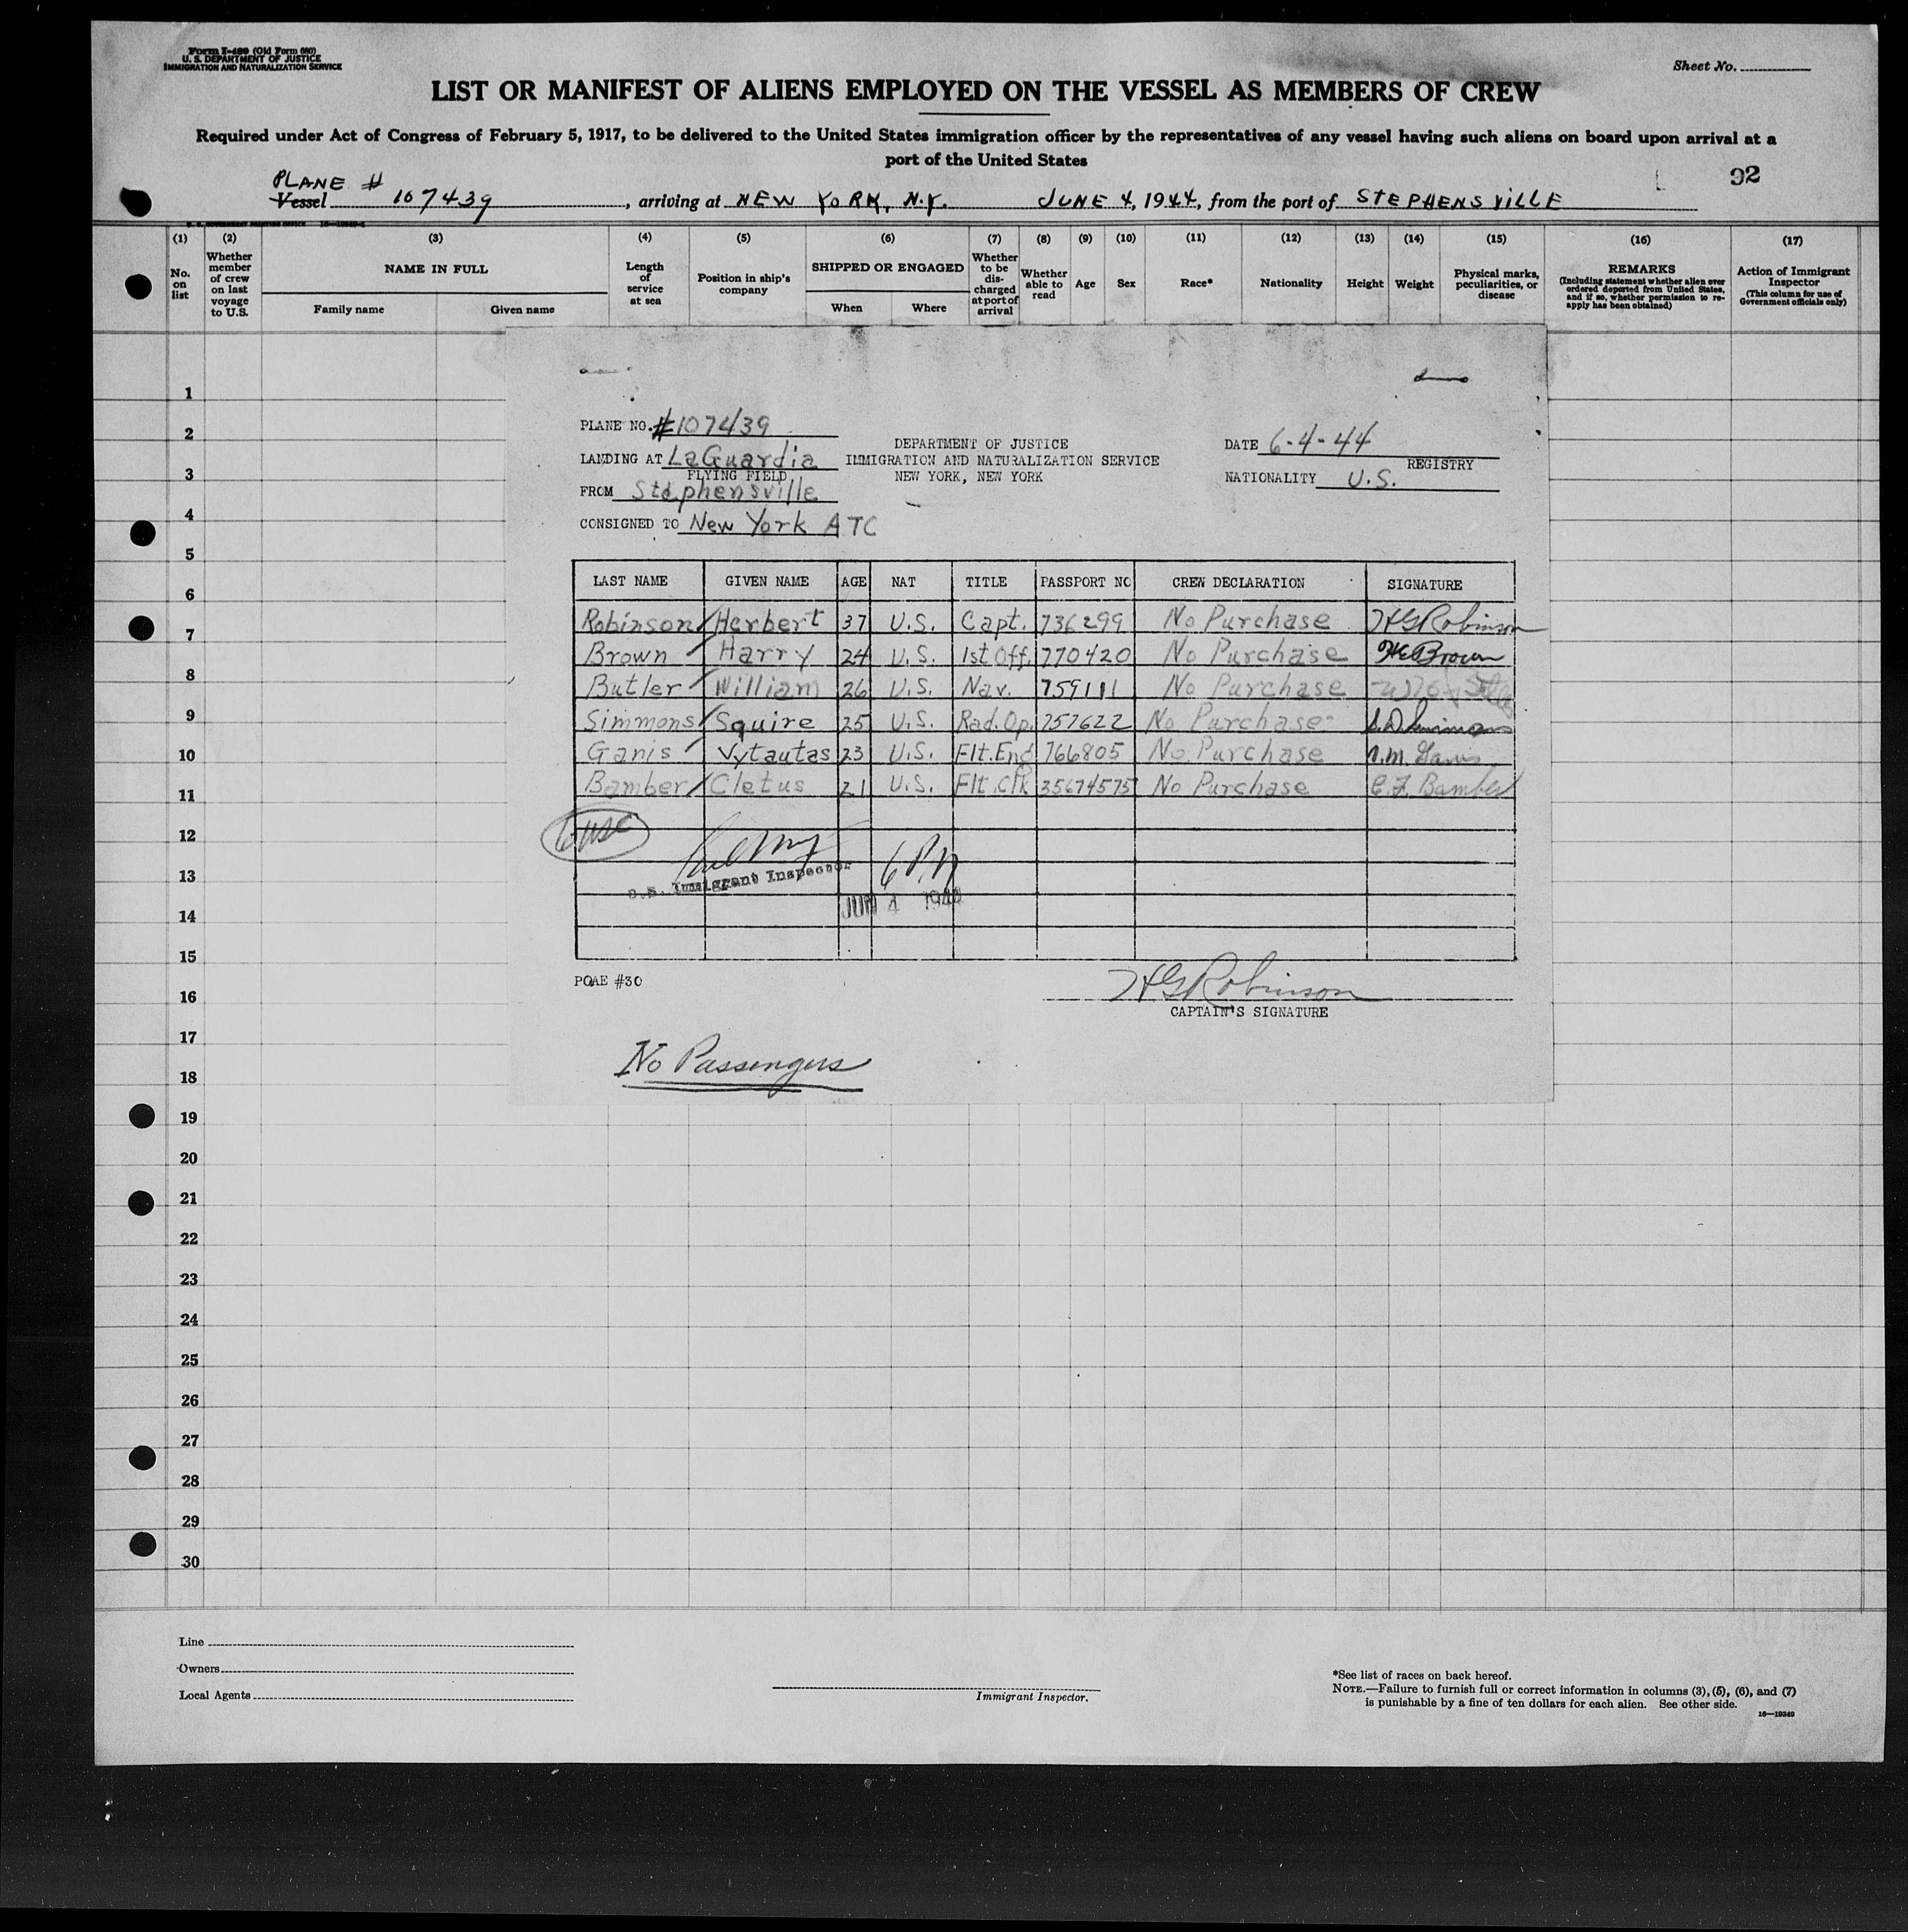 Form I-489 (Old Form 680)
U. S. DEPARTMENT OF JUSTICE
IMMIGRATION AND NATURALIZATION SERVICE
Sheet No.
LIST OR MANIFEST OF ALIENS EMPLOYED ON THE VESSEL AS MEMBERS OF CREW
Required under Act of Congress of February 5, 1917, to be delivered to the United States immigration officer by the representatives of any vessel having such aliens on board upon arrival at a
port of the United States
92
PLANE #
Vessel 107439, arriving at NEW YORK, N.Y. JUNE 4, 1944, from the port of STEPHENSVILLE
(1) (2) (3) (4) (5) (6) (7) (8) (9) (10) (11) (12) (13) (14) (15) (16) (17)
No. on list
Whether member of crew on last voyage to U.S.
NAME IN FULL
Family name Given name
Length of service at sea
Position in ship's company
SHIPPED OR ENGAGED
When Where
Whether to be discharged at port of arrival
Whether able to read
Age
Sex
Race*
Nationality
Height
Weight
Physical marks, peculiarities, or disease
REMARKS
(Including statement whether alien ever ordered deported from United States, and if so, whether permission to reapply has been obtained)
Action of Immigrant Inspector
(This column for use of Government officials only)
PLANE NO. #107439
LANDING AT LaGuardia
FLYING FIELD
FROM Stephensville
CONSIGNED TO New York ATC
DEPARTMENT OF JUSTICE
IMMIGRATION AND NATURALIZATION SERVICE
NEW YORK, NEW YORK
DATE 6-4-44
REGISTRY
NATIONALITY U.S.
LAST NAME GIVEN NAME AGE NAT TITLE PASSPORT NO CREW DECLARATION SIGNATURE
Robinson Herbert 37 U.S. Capt. 736299 No Purchase HG Robinson
Brown Harry 24 U.S. 1st Off. 770420 No Purchase HE Brown
Butler William 26 U.S. Nav. 759111 No Purchase
Simmons Squire 25 U.S. Rad. Op. 757622 No Purchase S.D. Simmons
Ganis Vytautas 23 U.S. Flt. Eng 766805 No Purchase V.M. Ganis
Bamber Cletus 21 U.S. Flt. Clk 35674575 No Purchase C.F. Bamber
6 USC
6 PM
U.S. Immigrant Inspector
JUN 4 1944
POAE #30
HG Robinson
CAPTAIN'S SIGNATURE
No Passengers
1
2
3
4
5
6
7
8
9
10
11
12
13
14
15
16
17
18
19
20
21
22
23
24
25
26
27
28
29
30
Line
Owners
Local Agents
Immigrant Inspector.
*See list of races on back hereof.
NOTE.—Failure to furnish full or correct information in columns (3), (5), (6), and (7)
is punishable by a fine of ten dollars for each alien. See other side.
16—19349